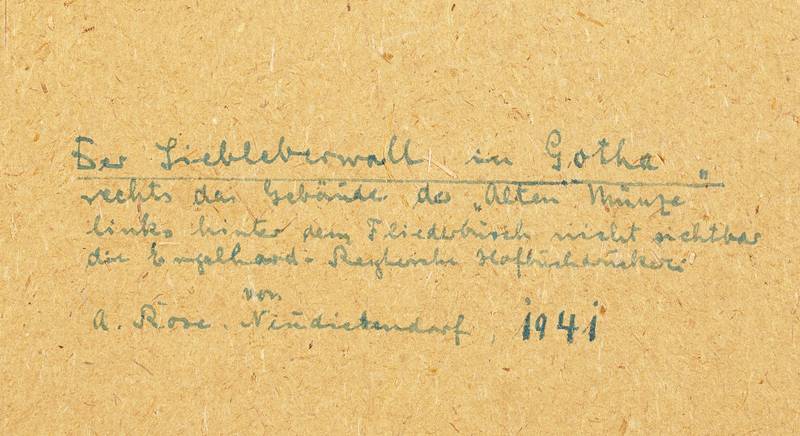 Der Siebleberwall in Gotha
rechts das Gebäude der „Alten Münze”
links hinter dem Fliederbusch nicht sichtbar
die Engelhard-Reyhersche Hofbuchdruckerei
von
A. Rose. Neudietendorf, 1941